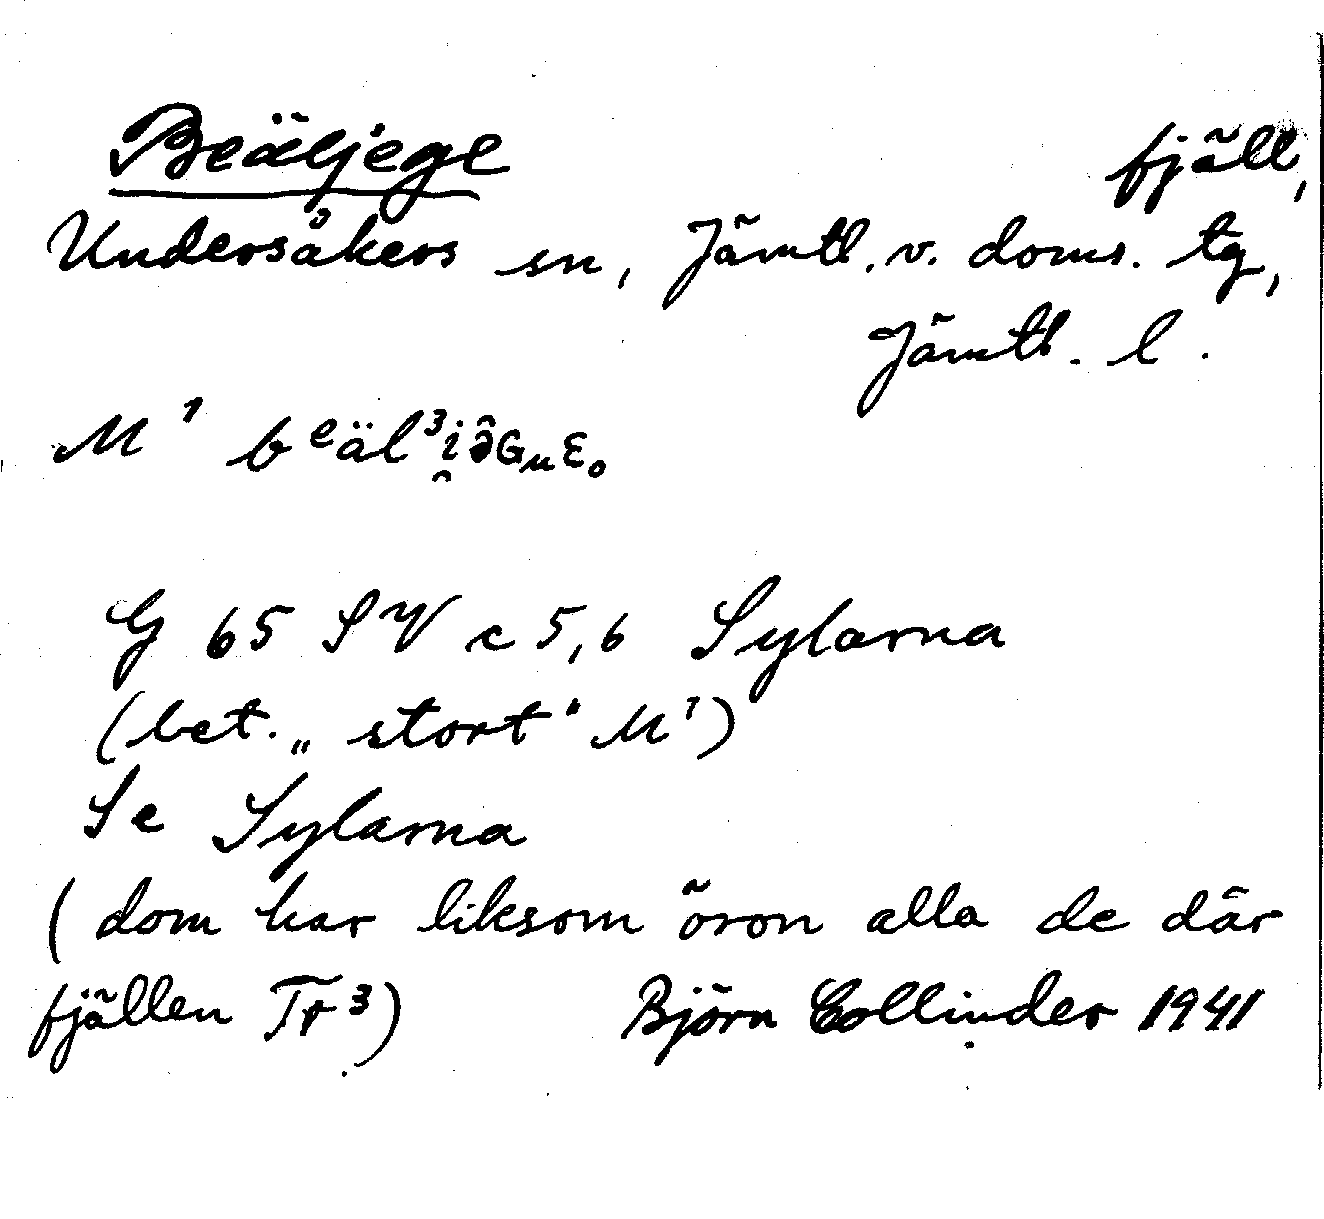 Beäljege fjäll,
Undersåkers sn, Jämtl. v. doms. tg,
Jämtl. l.
M¹ bᵉäl³i̯ə̂Gμɛₒ
G 65 SV c 5,6 Sylarna
(bet. „stort" M¹)
Se Sylarna
(dom har liksom öron alla de där
fjällen Tr³) Björn Collinder 1941